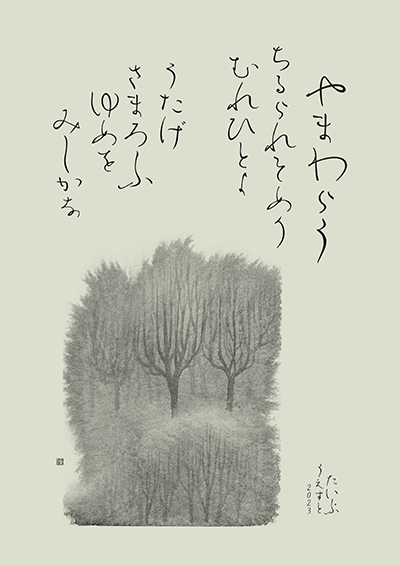 やまわらう
ちるられそめう
むれひとよ
うたげ
さまろふ
ゆめを
みしかな
たいぷ
うえすと
2023